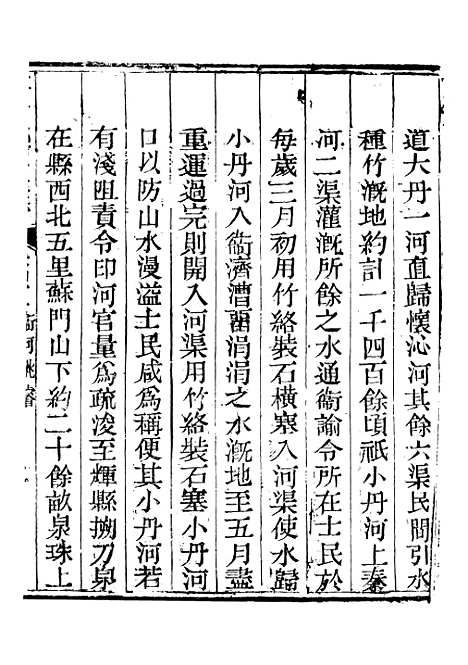 道大丹一河直歸懷沁河其餘六渠民間引水
種竹漑地約計一千四百餘頃祇小丹河上秦
河二渠灌漑所餘之水通衞諭令所在士民於
每歲三月初用竹絡裝石橫塞入河渠使水歸
小丹河入衞濟漕畱涓涓之水漑地至五月盡
重運過完則開入河渠用竹絡裝石塞小丹河
口以防山水漫溢士民咸爲稱便其小丹河若
有淺阻責令印河官量爲疏浚至輝縣搠刀泉
在縣西北五里蘇門山下約二十餘畝泉珠上
衞河